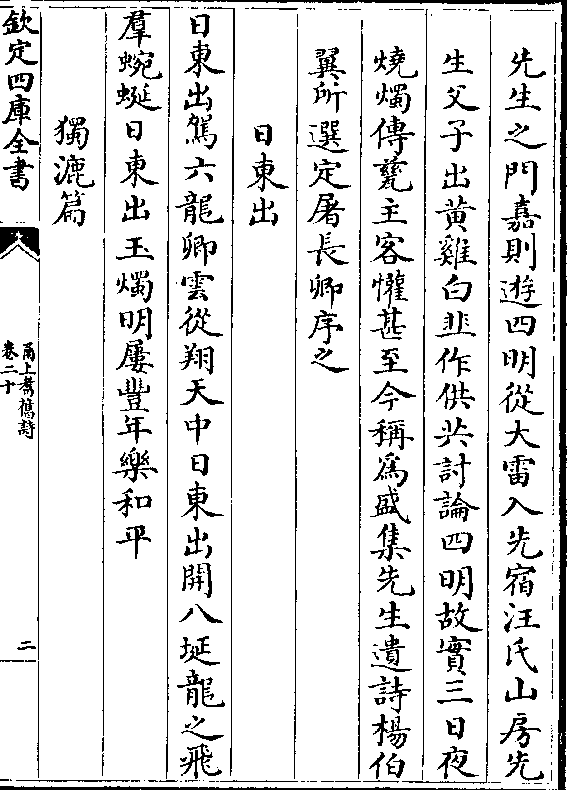 先生之門嘉則遊四明從大雷入先宿汪氏山房先
生父子出黄雞白韭作供共討論四明故實三日夜
燒燭傳甕主客懽甚至今稱爲盛集先生遺詩楊伯
翼所選定屠長卿序之
日東出
日東出駕六龍卿雲從翔天中日東出開八埏龍之飛
羣蜿蜒日東出玉燭明屢豐年樂和平
獨漉篇
欽定四庫全書
甬上耆舊詩
卷二十
二